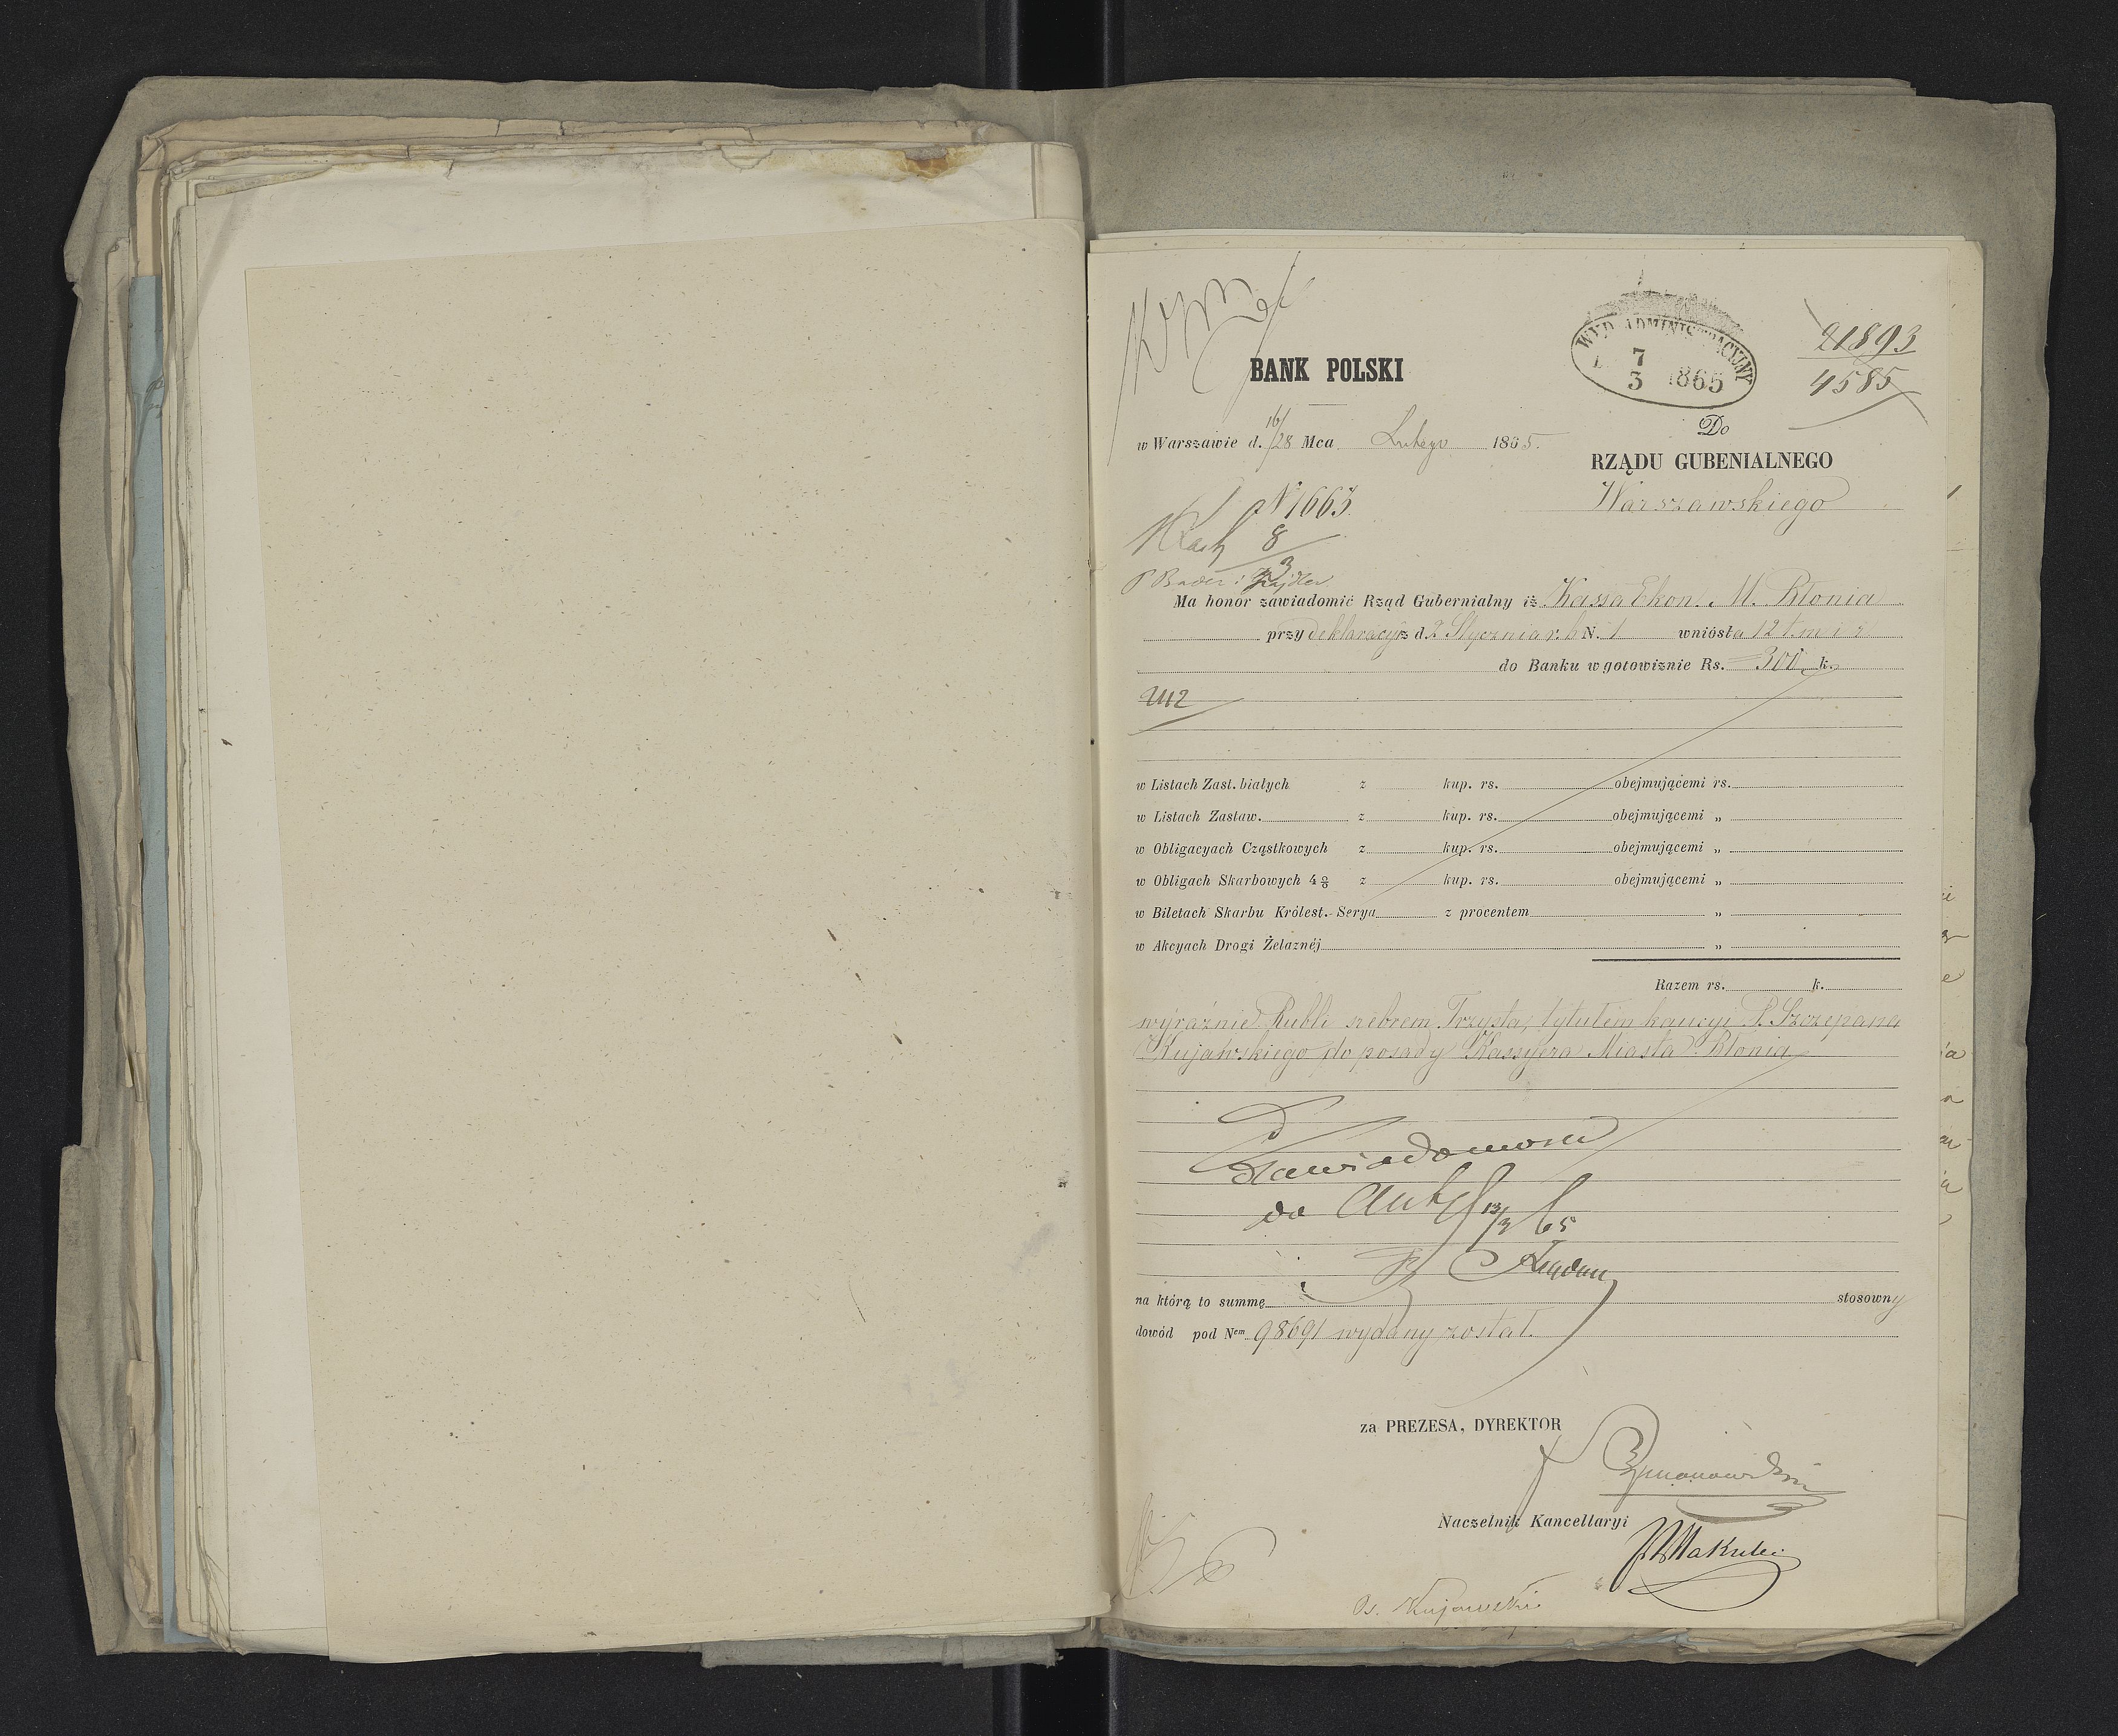 WYD ADMINISTRACYJNY
7
3 1865
21893
4585
BANK POLSKI
w Warszawie d. 16/28 Mca Lutego 1865.
Do
RZĄDU GUBENIALNEGO
Warszawskiego
N 1663
8
3
Ma honor zawiadomić Rząd Gubernialny iż Kassa Ekon. M. Błonia
przy deklaracyi z d. 2 Stycznia r. b N. 1 wniosła 12 t. m i r
do Banku w gotowiznie Rs. 300 k.
w Listach Zast. białych z kup. rs. obejmującemi rs.
w Listach Zastaw. z kup. rs. obejmującemi „
w Obligacyach Cząstkowych z kup. rs. obejmującemi „
w Obligach Skarbowych 4 % z kup. rs. obejmującemi „
w Biletach Skarbu Królest. Serya z procentem „
w Akcyach Drogi Żelaznéj „
Razem rs. k.
wyraźnie Rubli srebrem Trzysta, tytułem kaucyi P. Szczepana
Kujawskiego do posady Kassyera Miasta Błonia
Zawiadomienie
do Akt 13/3 65
na którą to summę stosowny
dowód pod Nem 98691 wydany został.
za PREZESA, DYREKTOR
Szymanowski
Naczelnik Kancellaryi
Makulec
Kujawski